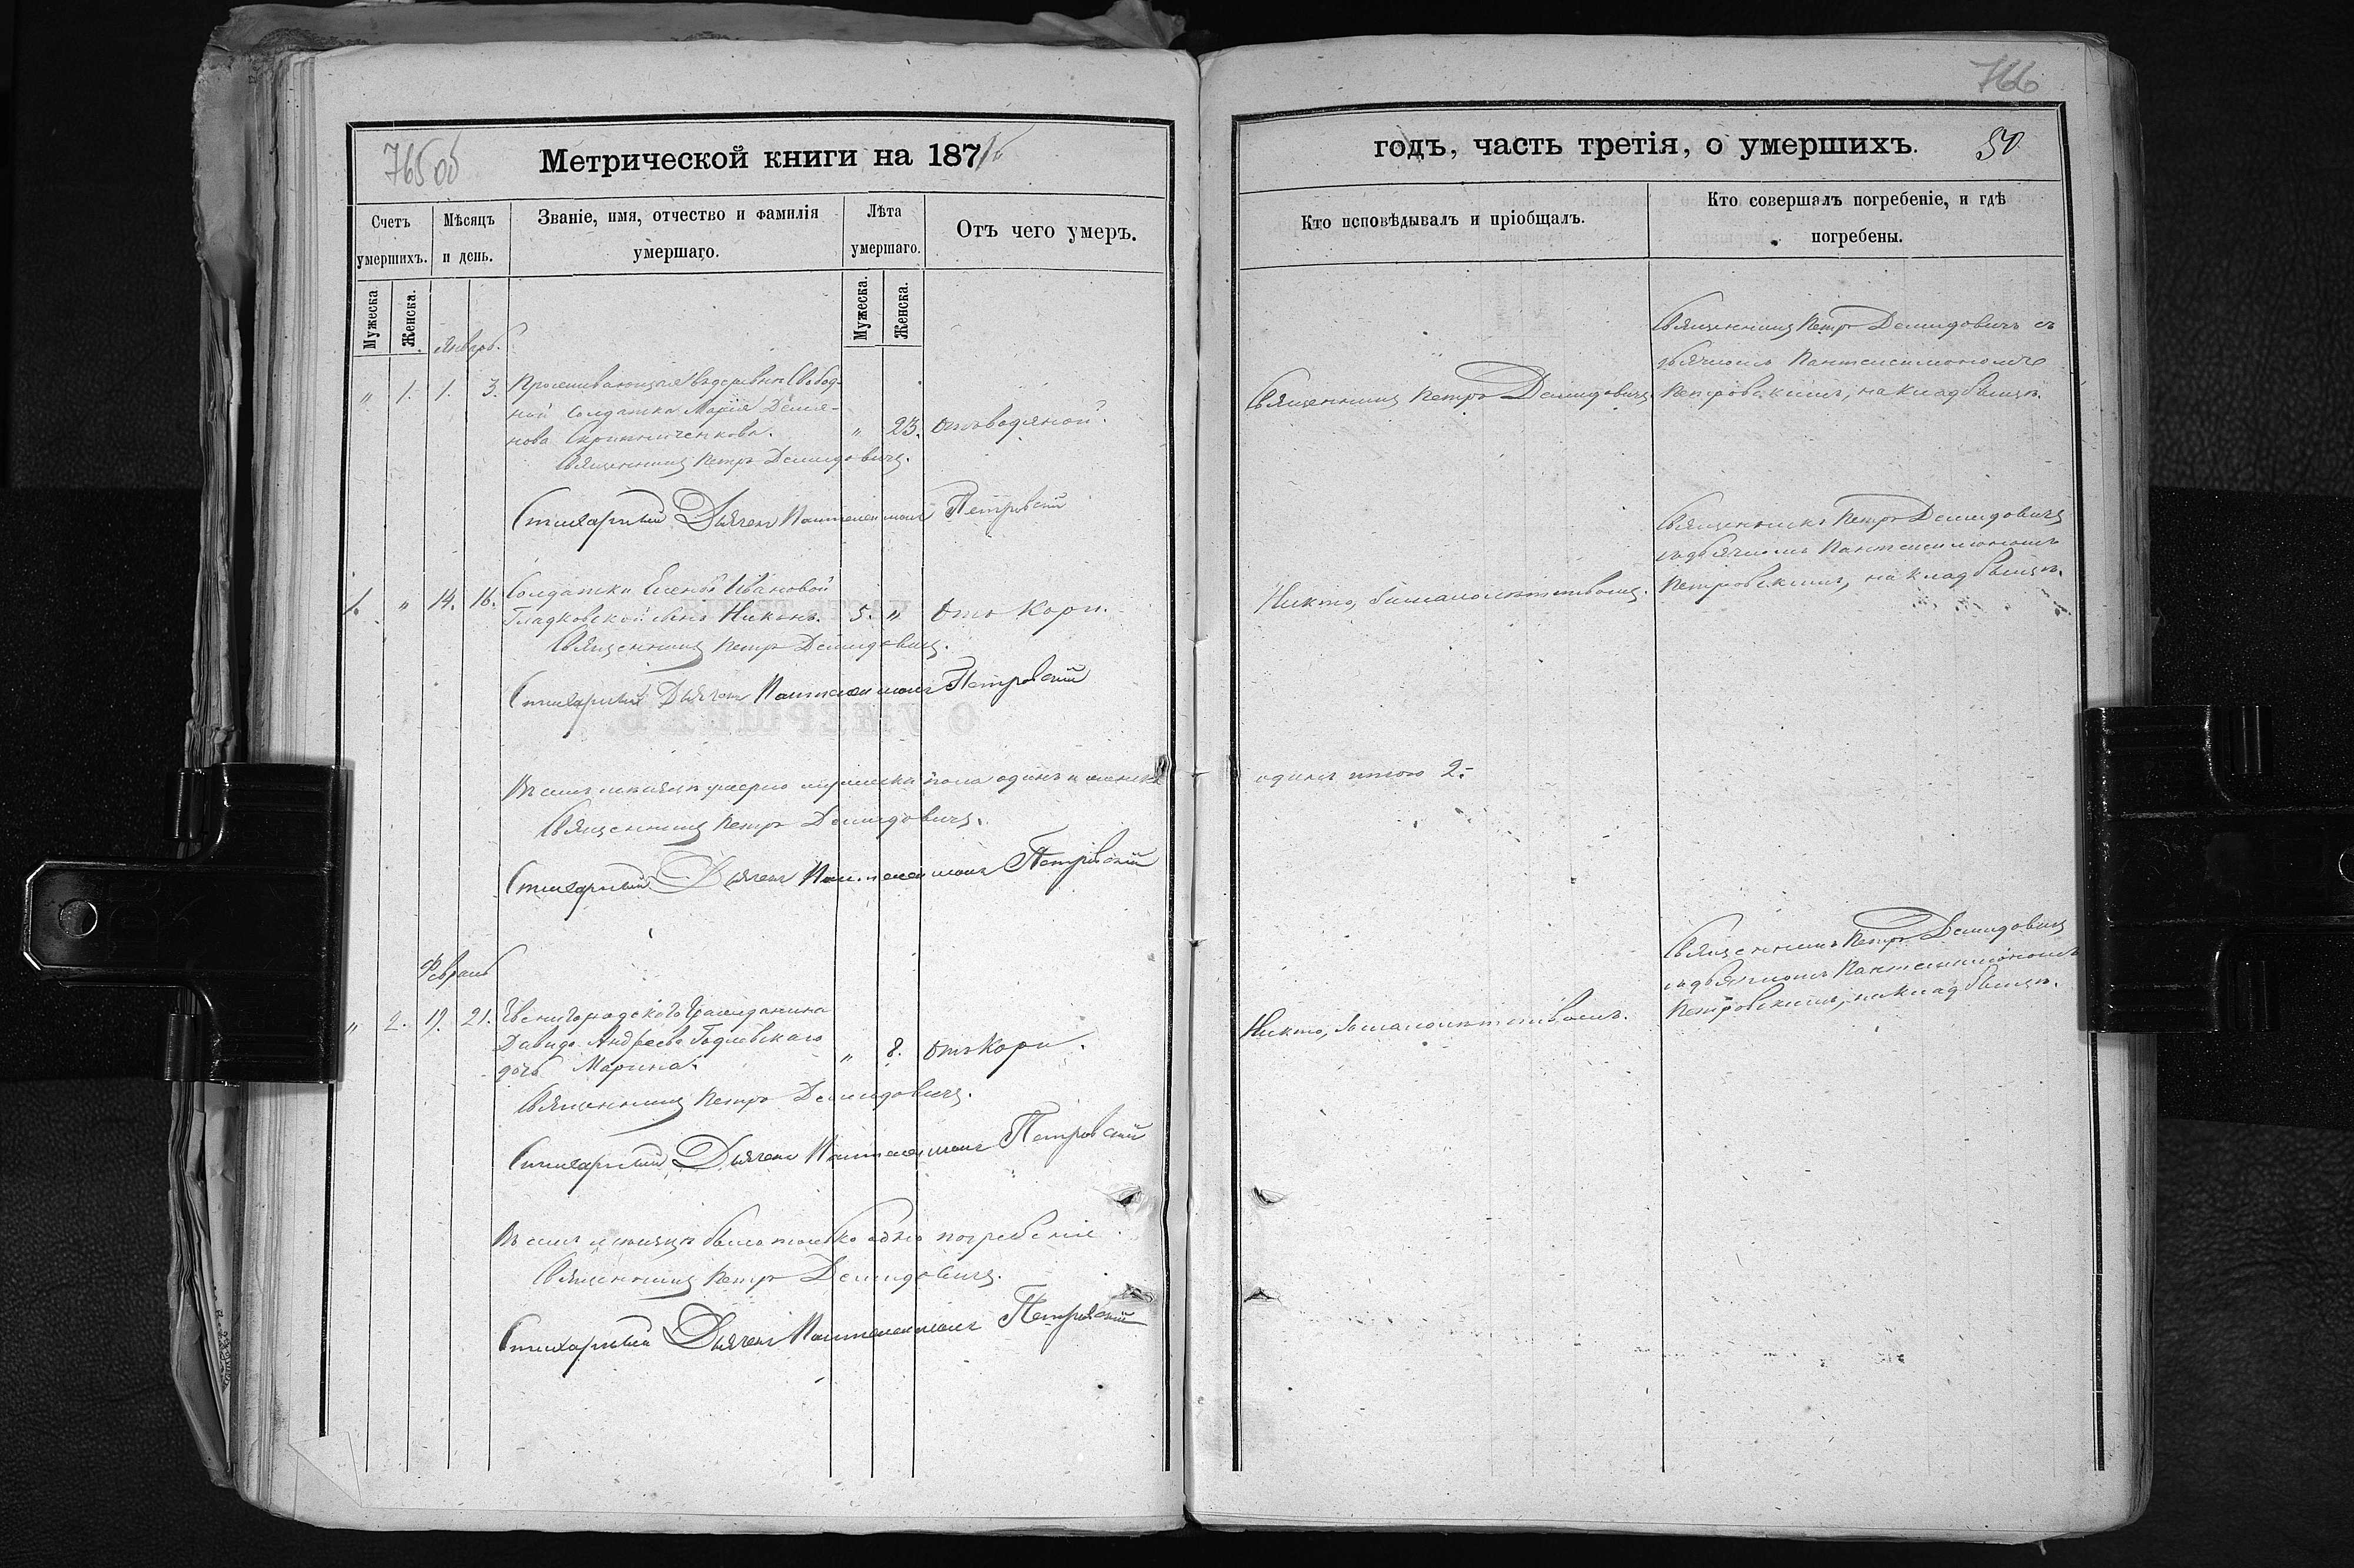 765 об
Метрической книги на 187
Счетъ умершихъ.
Мѣсяцъ и день.
Званіе, имя, отчество и фамилія умершаго.
Лѣта умершаго.
Отъ чего умеръ.
Мужеска
Женска.
Мужеска.
Женска.
Январь.
" 1. 1. 3. Проживающая въ деревни Свобод-
ной Солдатка Марія Демья-
нова " 23. отъ водяной.
Священникъ Петръ Демидовичъ.
Стихарный Дьячекъ Пантелеимонъ Петровскій
1. " 14. 16. Солдатки Елены Ивановой
Гладковской сынъ Никонъ. 5. " Отъ Кори.
Священникъ Петръ Демидовичъ.
Стихарный Дьячекъ Пантелеимонъ Петровскій
Въ семъ месяцѣ умерло мужеска пола одинъ и женска
Священникъ Петръ Демидовичъ.
Стихарный Дьячекъ Пантелеимонъ Петровскій
Февраль
" 2. 19. 21. Звенигородского Гражданина
Давида Андреева Годлевскаго
дочь Марина. " 8. Отъ Кори.
Священникъ Петръ Демидовичъ.
Стихарный Дьячекъ Пантелеимонъ Петровскій
Въ семъ месяцѣ было только одно погребеніе
Священникъ Петръ Демидовичъ.
Стихарный Дьячекъ Пантелеимонъ Петровскій
766
годъ, часть третія, о умершихъ.
50
Кто исповѣдывалъ и пріобщалъ.
Кто совершалъ погребеніе, и гдѣ погребены.
Священникъ Петръ Демидовичъ
Священникъ Петръ Демидовичъ съ
дьячкомъ Пантелеимономъ
Петровскимъ, на кладбищѣ.
Никто, за малолѣтствомъ.
Священникъ Петръ Демидовичъ
съ дьячкомъ Пантелеимономъ
Петровскимъ, на кладбищѣ.
одинъ итого 2.
Никто, за малолѣтствомъ.
Священникъ Петръ Демидовичъ
съ дьячкомъ Пантелеимономъ
Петровскимъ, на кладбищѣ.